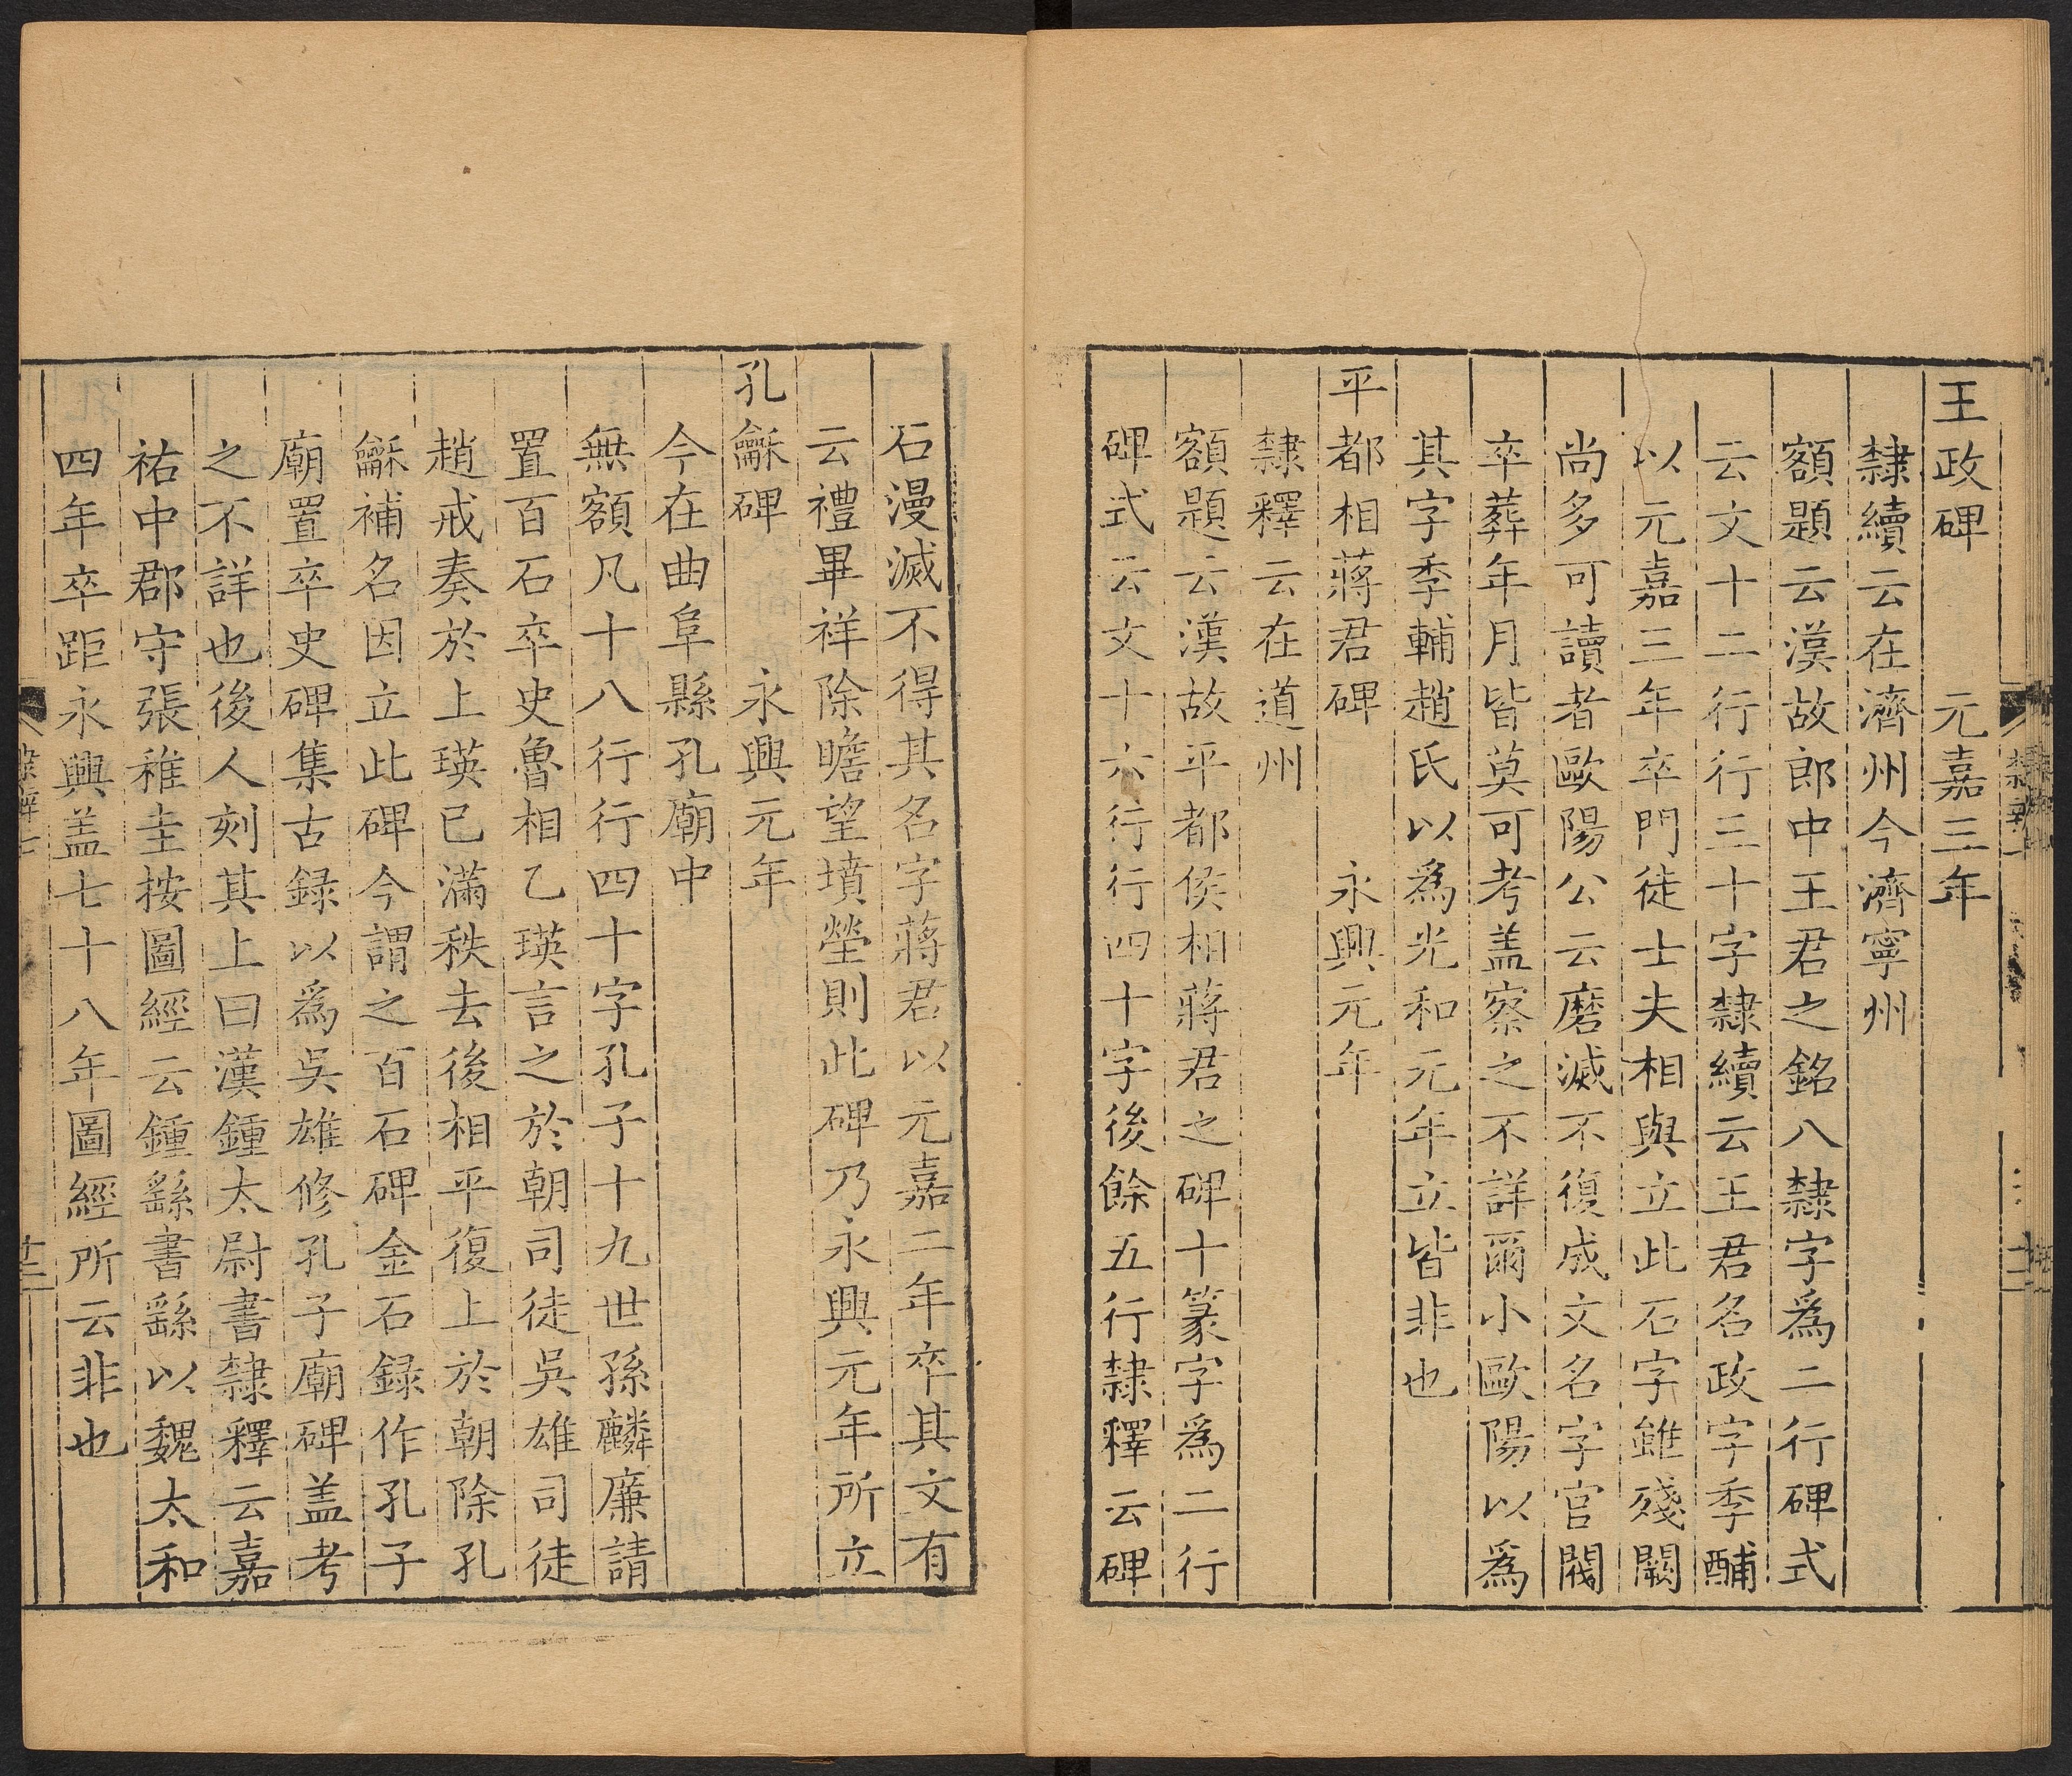 王政碑 元嘉三年
隸續云在濟州今濟寧州
額題云漢故郎中王君之銘八隸字爲二行碑式
云文十二行行三十字隸續云王君名政字季酺
以元嘉三年卒門徒士夫相與立此石字雖殘闕
尚多可讀者歐陽公云磨滅不復成文名字官閥
卒葬年月皆莫可考盖察之不詳爾小歐陽以爲
其字季輔趙氏以爲光和元年立皆非也
平都相蔣君碑 永興元年
隸釋云在道州
額題云漢故平都侯相蔣君之碑十篆字爲二行
碑式云文十六行行四十字後餘五行隸釋云碑
石漫滅不得其名字蔣君以元嘉二年卒其文有
云禮畢祥除瞻望墳塋則此碑乃永興元年所立
孔龢碑 永興元年
今在曲阜縣孔廟中
無額凡十八行行四十字孔子十九世孫麟廉請
置百石卒史魯相乙瑛言之於朝司徒吳雄司徒
趙戒奏於上瑛已滿秩去後相平復上於朝除孔
龢補名因立此碑今謂之百石碑金石録作孔子
廟置卒史碑集古録以爲吳雄修孔子廟碑盖考
之不詳也後人刻其上曰漢鍾太尉書隸釋云嘉
祐中郡守張稚圭按圖經云鍾繇書繇以魏太和
四年卒距永興盖七十八年圖經所云非也